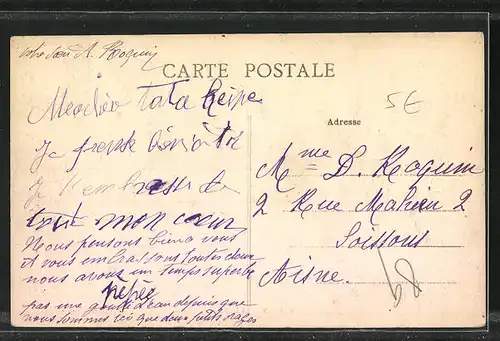 votre sœur A. Roquin
CARTE POSTALE
5E
Meachère tata Reine
Je pense bientôt
Je t'embrasse de
tout mon cœur
Adresse
Mme D. Roquin
2 Rue Mahieu 2
Soissons
Aisne.
Nous pensons bien a vous
et vous embrassons toutes deux
nous avons un temps superbe
pépée
pas une goutte d'eau depuis que
nous sommes ici que deux petits orages